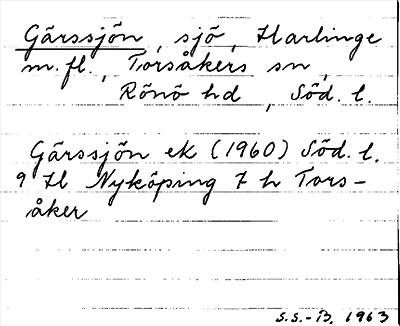 Gärssjön, sjö, Harlinge
m.fl., Torsåkers sn,
Rönö hd, Söd. l.
Gärssjön ek (1960) Söd. l.
9 H Nyköping 7 h Tors-
åker
S.S.-B. 1963